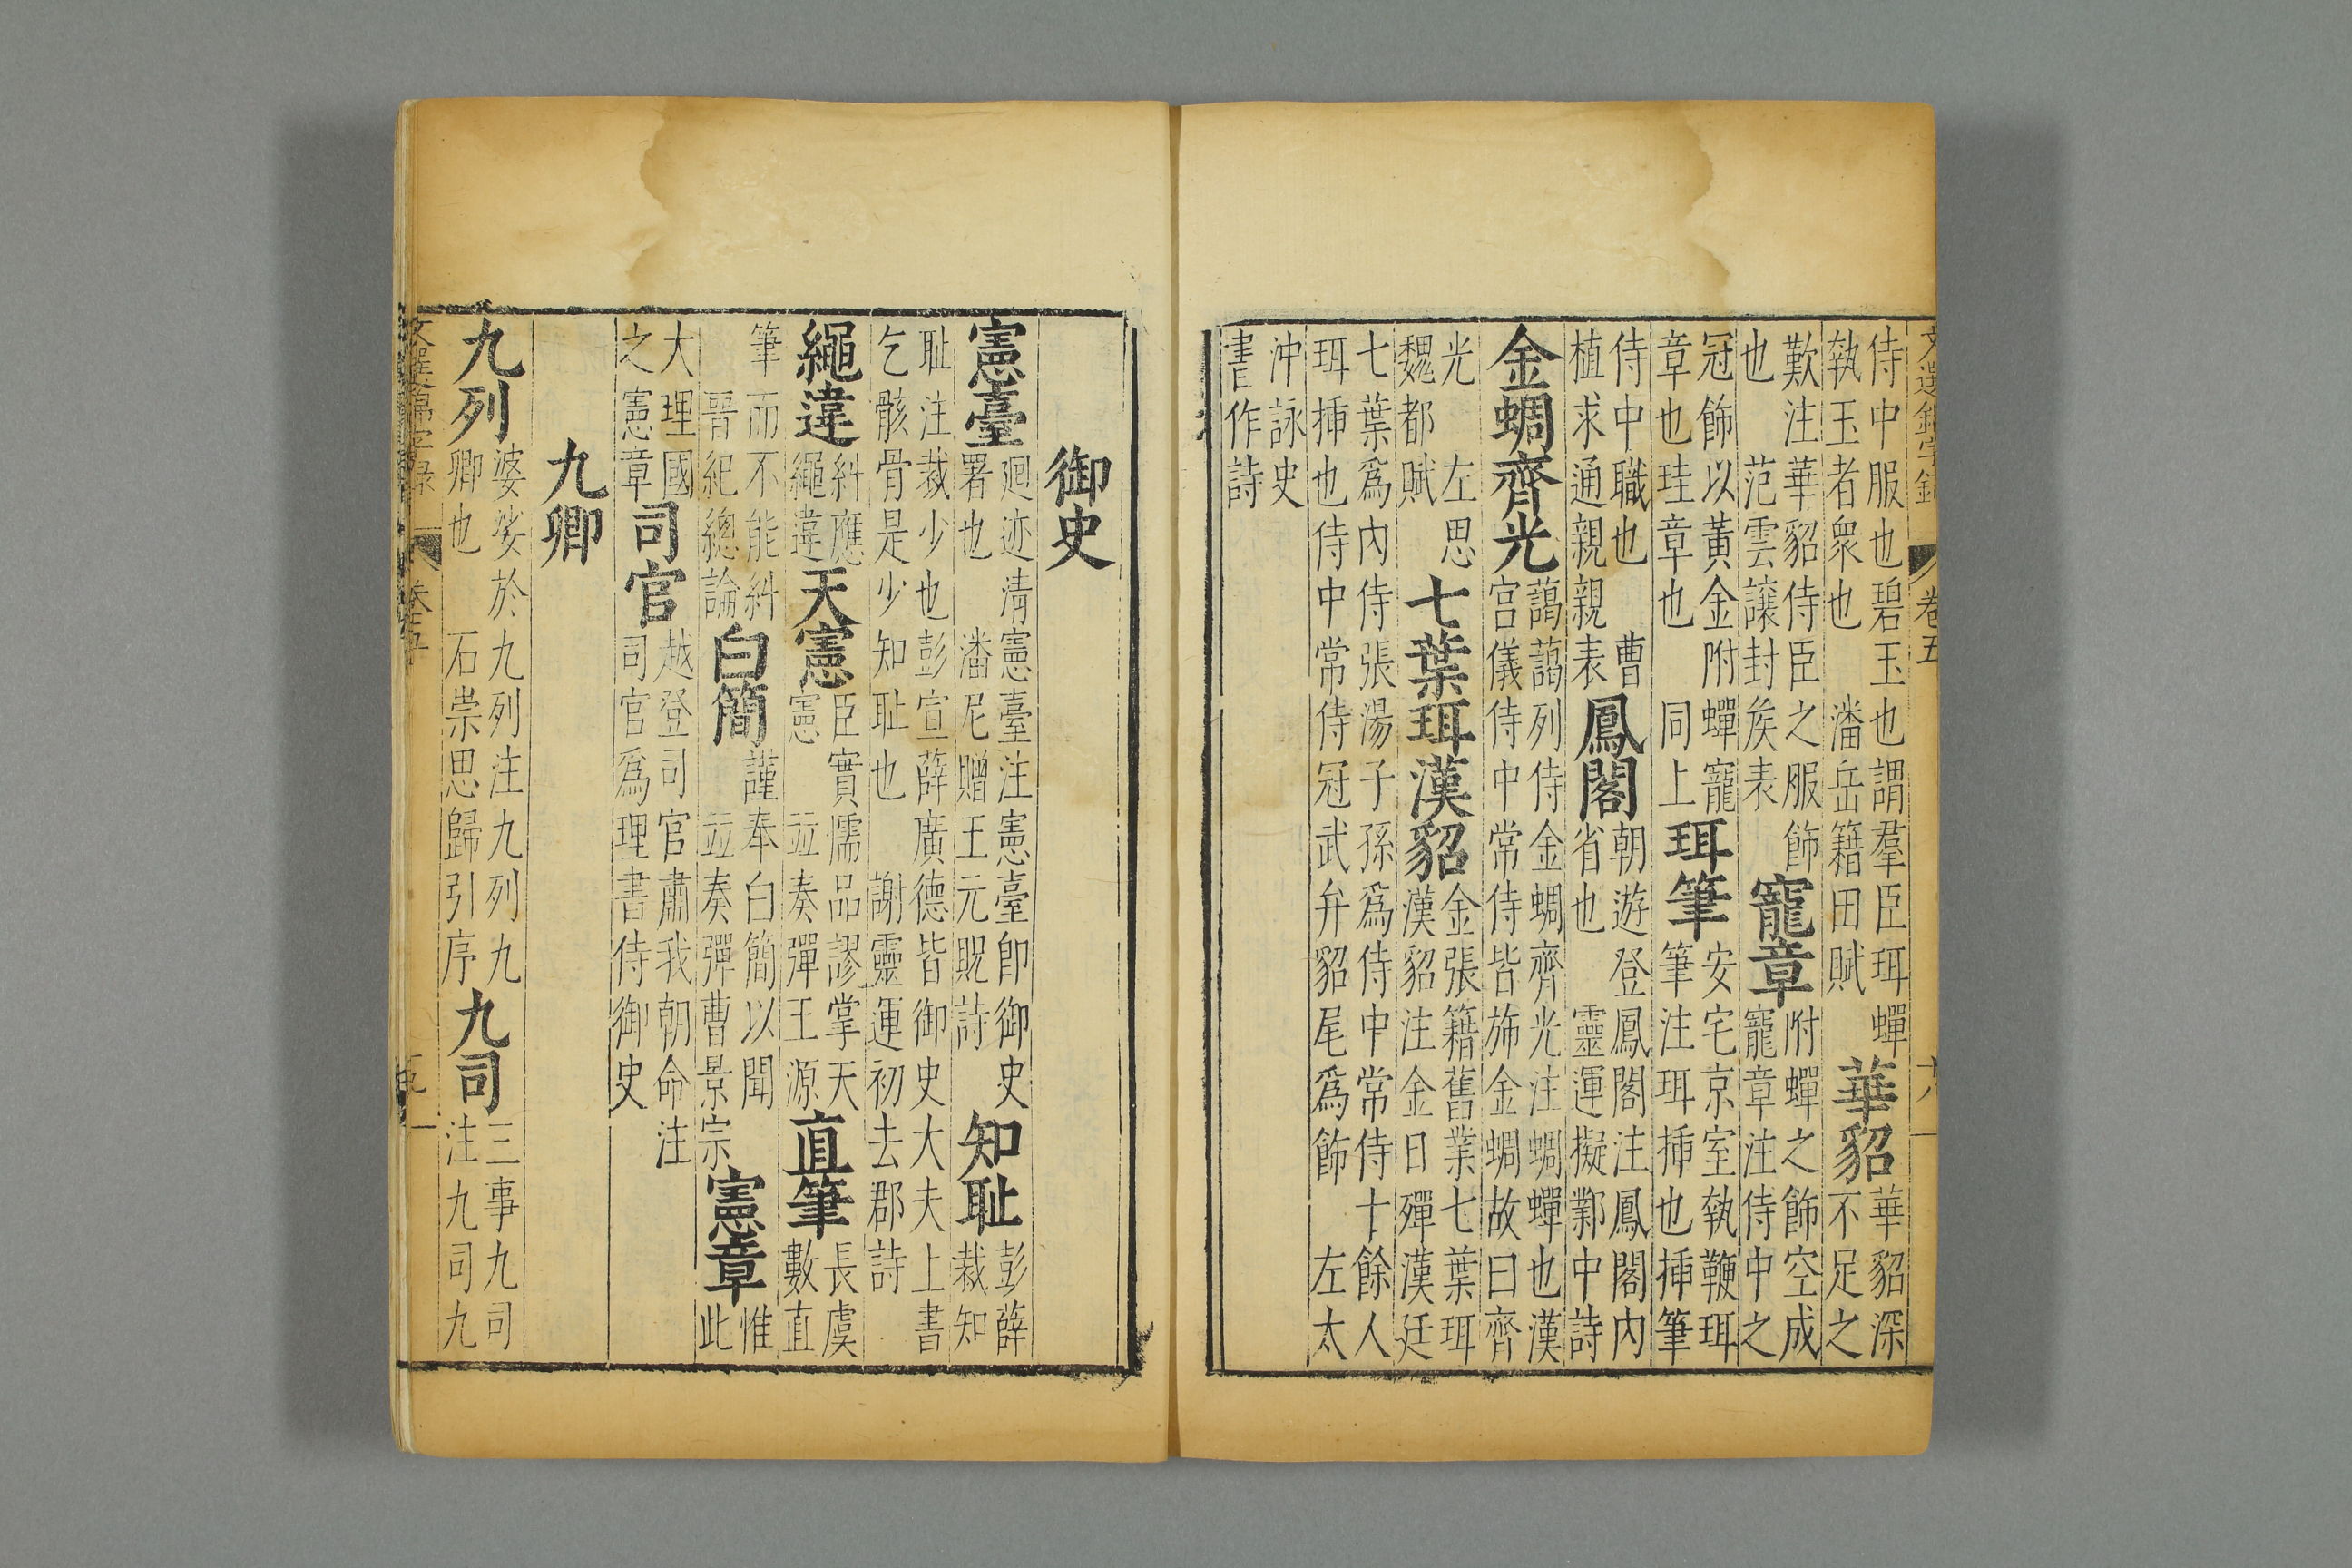 文選錦字錄 卷五
侍中服也碧玉也謂羣臣珥蟬
執玉者衆也 潘岳籍田賦
華貂
華貂深
不足之
歎注華貂侍臣之服飾
也 范雲讓封矦表
寵章
附蟬之飾空成
寵章注侍中之
冠飾以黃金附蟬寵
章也珪章也 同上
珥筆
安宅京室執鞭珥
筆注珥挿也挿筆
侍中職也 曹
植求通親親表
鳳閣
朝遊登鳳閣注鳳閣內
省也 靈運擬鄴中詩
金蜩齊光
藹藹列侍金蜩齊光注蜩蟬也漢
宮儀侍中常侍皆施金蜩故曰齊
光 左思
魏都賦
七葉珥漢貂
金張籍舊業七葉珥
漢貂注金日殫漢廷
七葉爲內侍張湯子孫爲侍中常侍十餘人
珥挿也侍中常侍冠武弁貂尾爲飾 左太
沖詠史
書作詩
御史
憲臺
迴迹清憲臺注憲臺卽御史
署也 潘尼贈王元貺詩
知耻
彭薛
裁知
耻注裁少也彭宣薛廣德皆御史大夫上書
乞骸骨是少知耻也 謝靈運初去郡詩
繩違
糾應
繩違
天憲
臣實懦品謬掌天
憲 竝奏彈王源
直筆
長虞
數直
筆而不能糾
晉紀總論
白簡
謹奉白簡以聞
竝奏彈曹景宗
憲章
惟此
大理國
之憲章
司官
越登司官肅我朝命注
司官爲理書侍御史
九卿
九列
婆娑於九列注九列九
卿也 石崇思歸引序
九司
三事九司
注九司九
文選錦字錄 卷五